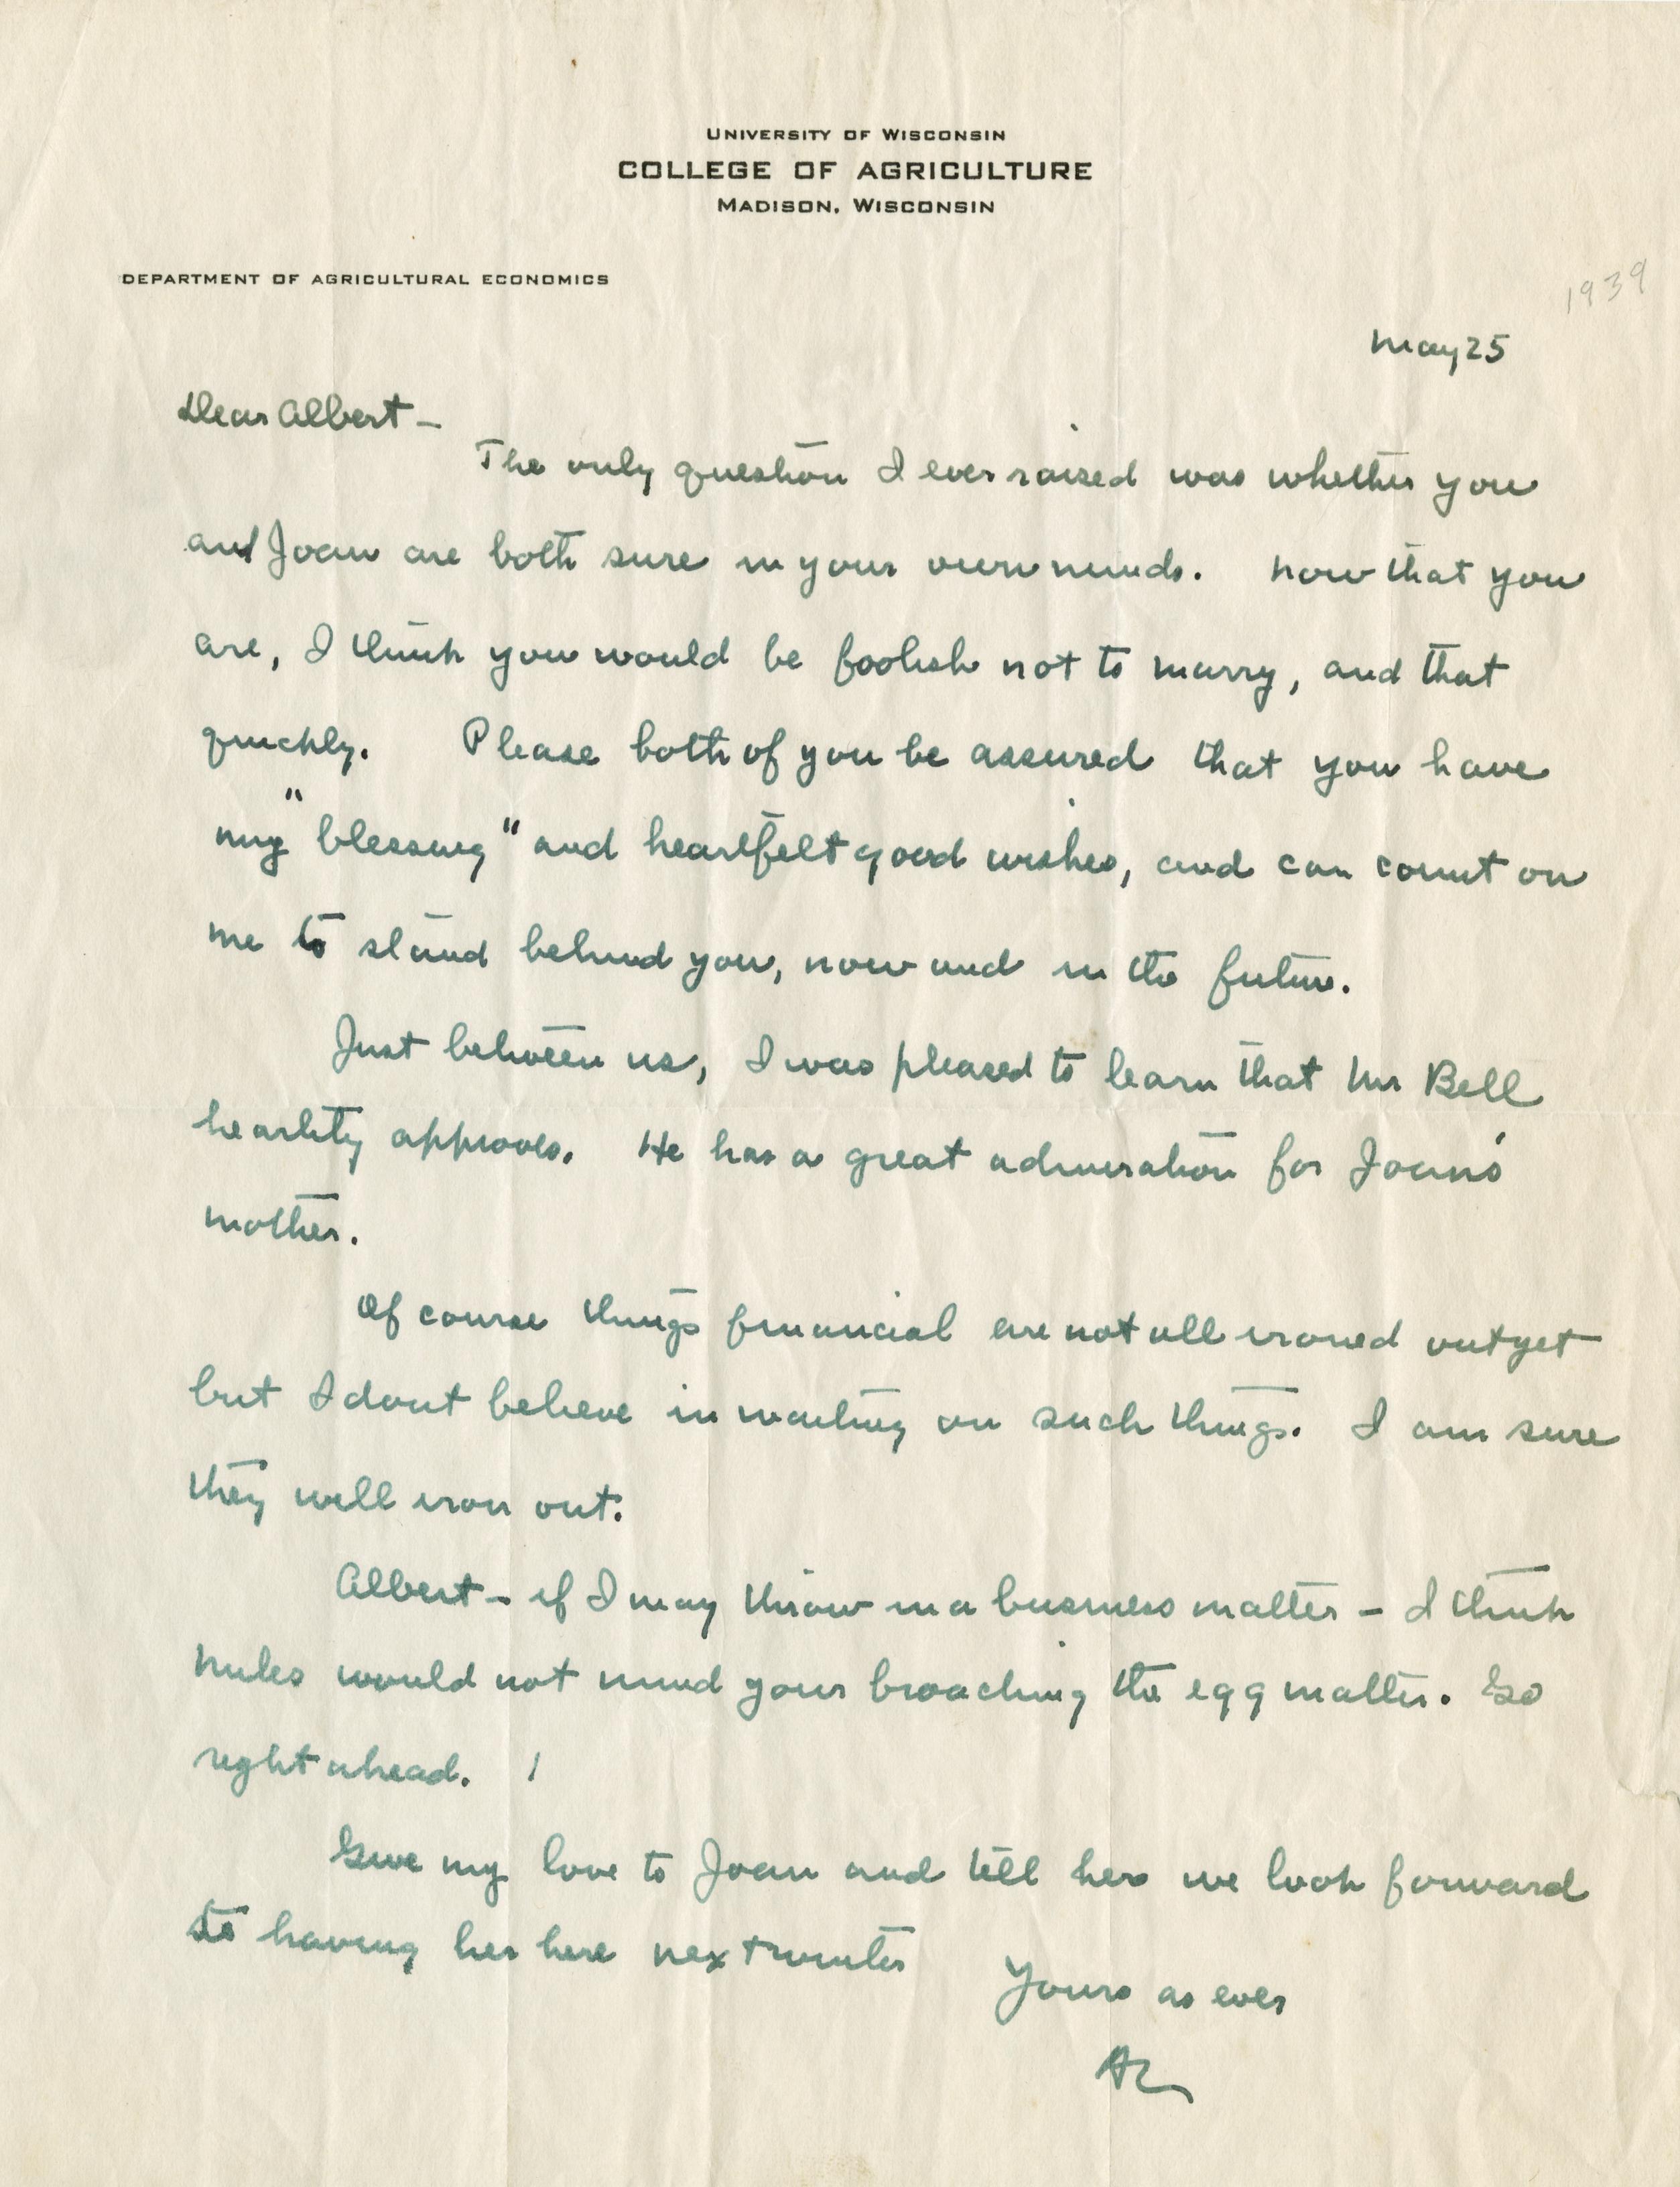 UNIVERSITY OF WISCONSIN
COLLEGE OF AGRICULTURE
MADISON, WISCONSIN
DEPARTMENT OF AGRICULTURAL ECONOMICS
1939
May 25
Dear Albert -
The only question I ever raised was whether you
and Joan are both sure in your own minds. Now that you
are, I think you would be foolish not to marry, and that
quickly. Please both of you be assured that you have
my "blessing" and heartfelt good wishes, and can count on
me to stand behind you, now and in the future.
Just between us, I was pleased to learn that Mr Bell
heartity approves. He has a great admiration for Joans'
mother.
Of course things financial are not all ironed out yet
but I dont believe in waiting on such things. I am sure
they will iron out.
Albert - if I may throw in a business matter - I think
Miles would not mind your broaching the egg matter. Go
right ahead. /
Give my love to Joan and tell her we look forward
to having her here next winter
Yours as ever
AL